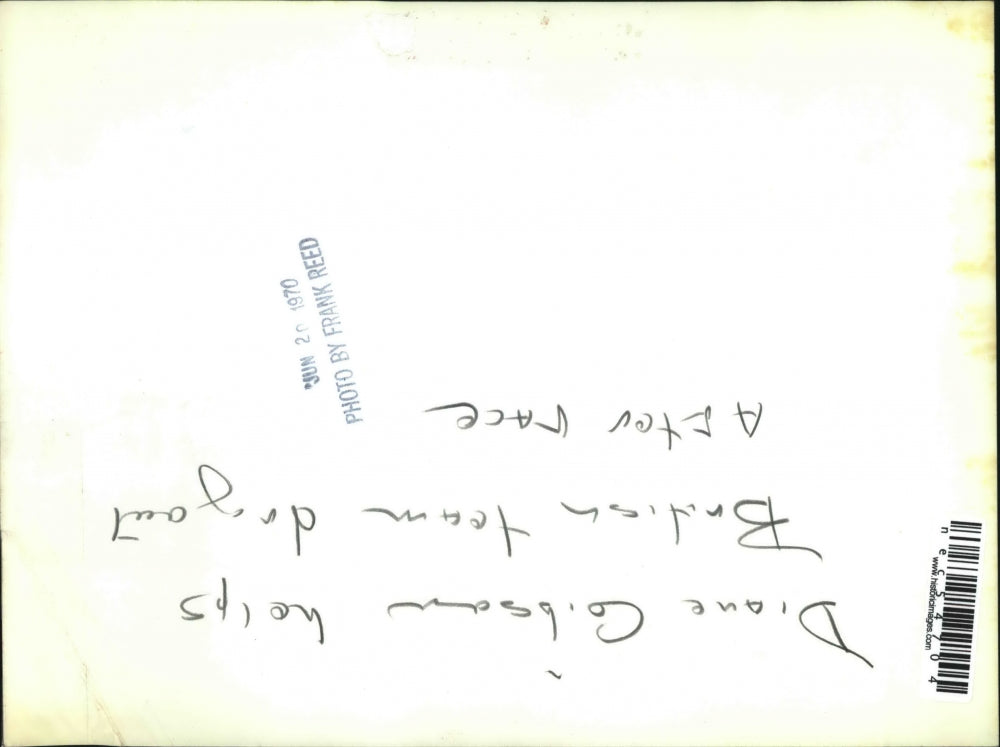 Diane Gibson helps
British team dry out
After race
JUN 2 1970
PHOTO BY FRANK REED
www.historicimages.com
nec54704